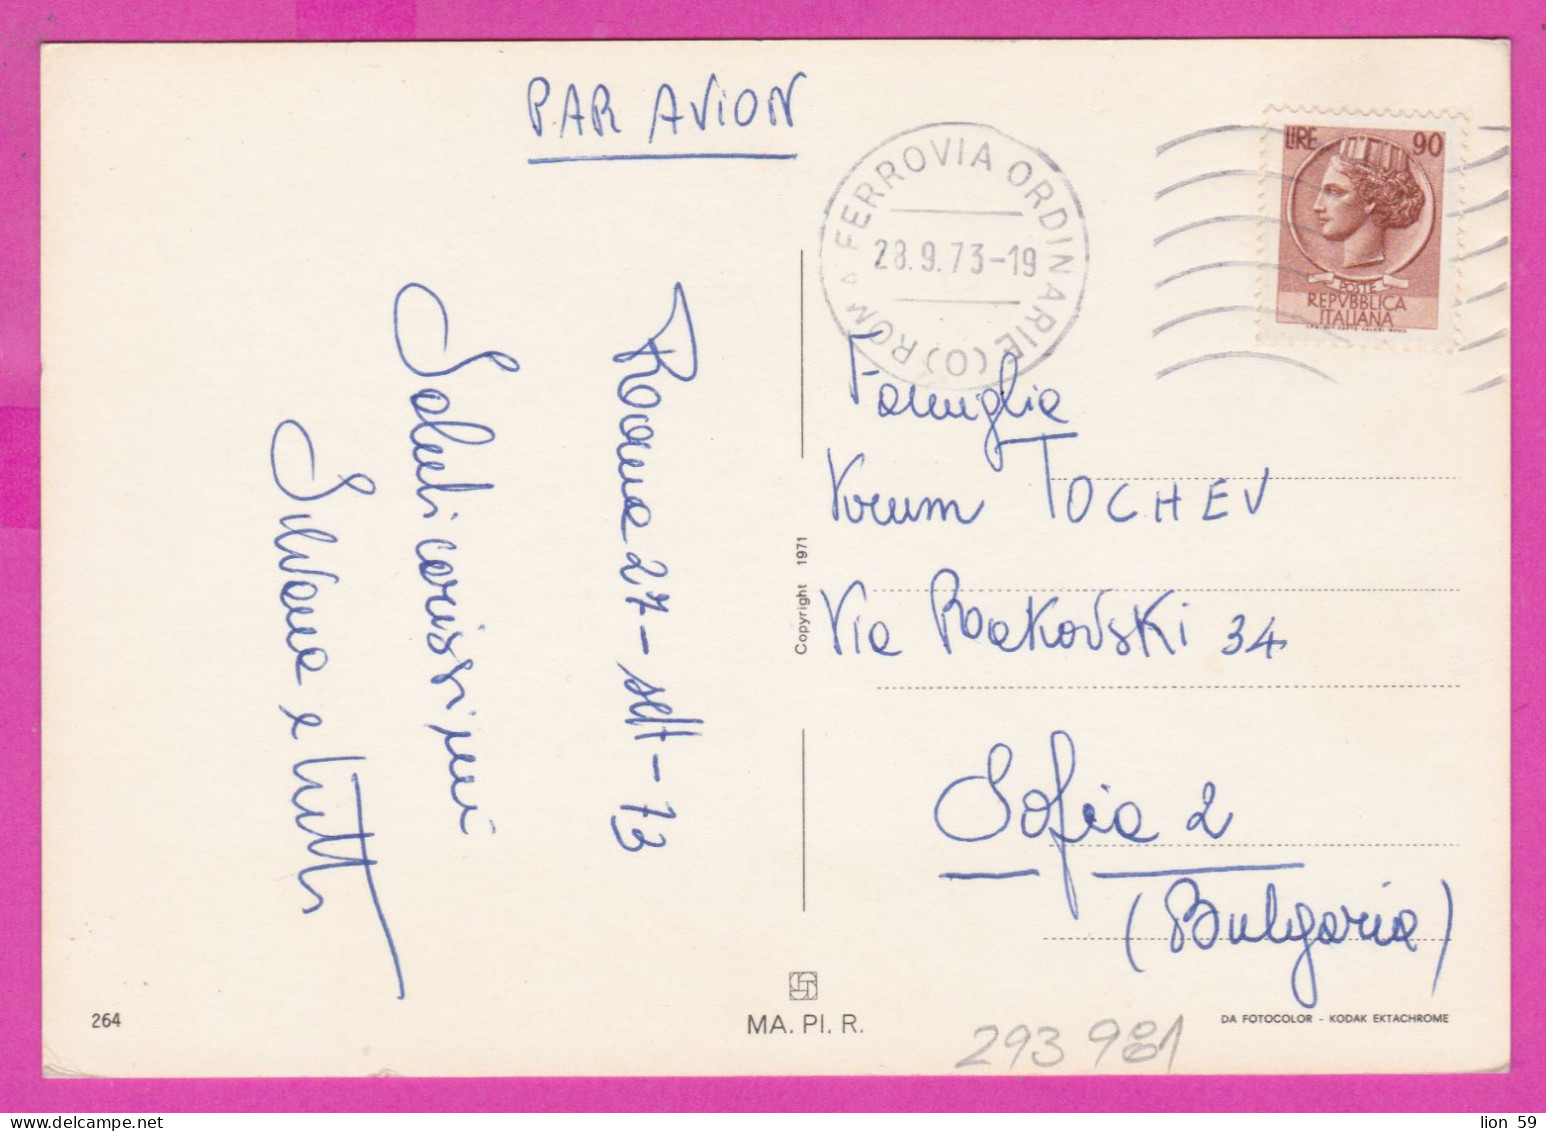 PAR AVION
FERROVIA ORDINARIE (O) ROMA
28.9.73-19
LIRE 90
POSTE
REPVBBLICA
ITALIANA
Roma 27-sett-73
Saluti carissimi
Silvana e tutti
Famiglia
Krum TOCHEV
Via Rakovski 34
Sofia 2
(Bulgaria)
Copyright 1971
264
MA. PI. R.
DA FOTOCOLOR - KODAK EKTACHROME
293 981
lion 59